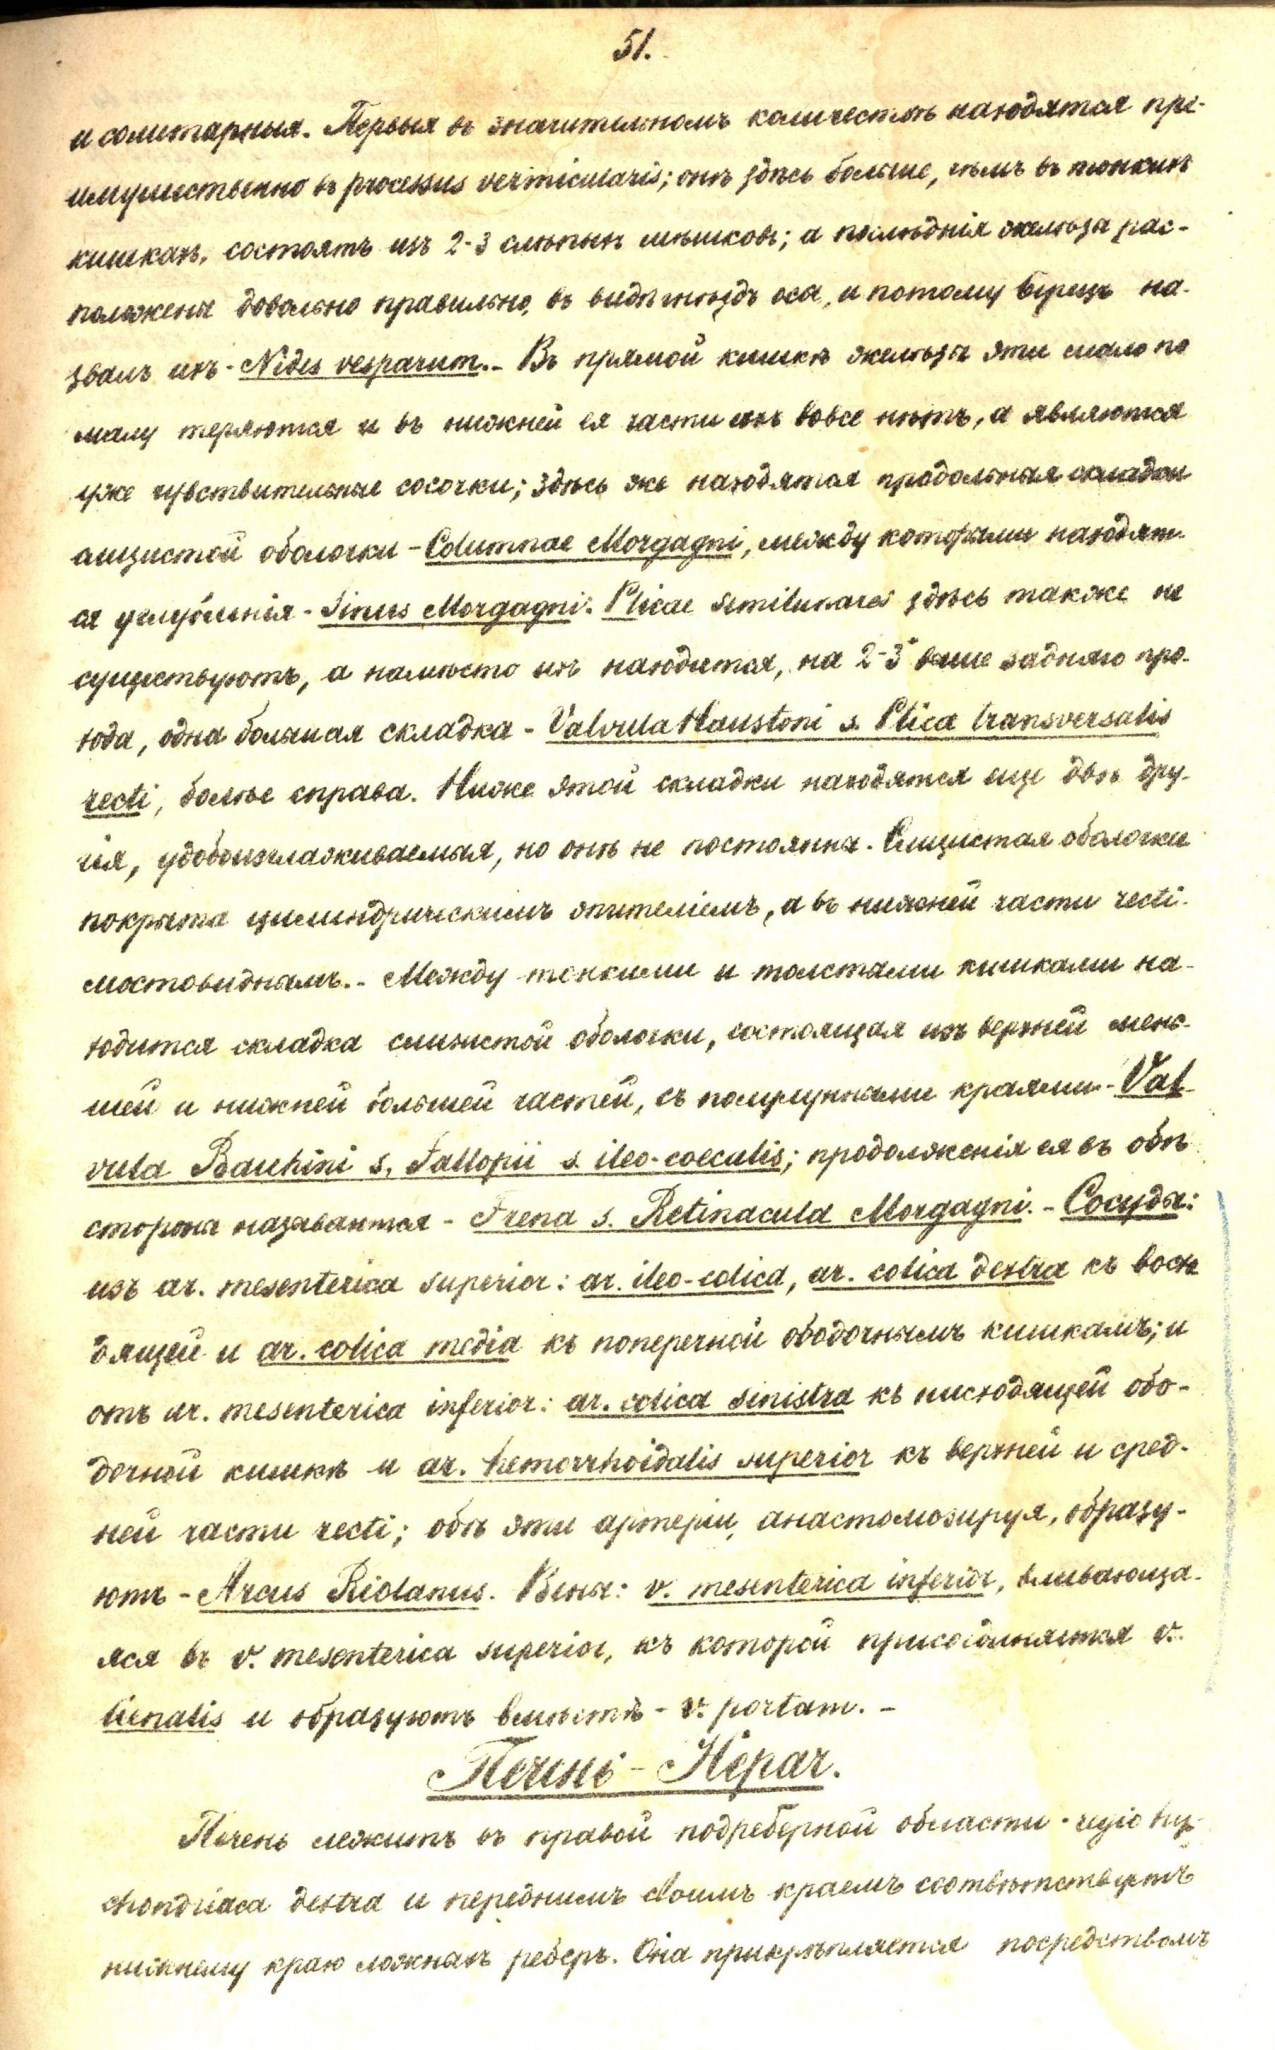 51.
и солитарныя. Первыя въ значительномъ количествѣ находятся пре-
имущественно въ processus vermicularis; онѣ здѣсь больше, чѣмъ въ тонкихъ
кишкахъ, состоятъ изъ 2-3 слѣпыхъ мѣшковъ; а послѣднія железы рас-
положены довольно правильно, въ видѣ гнѣздъ осы, и потому Бурецъ на-
звалъ ихъ - Nides vesparum. - Въ прямой кишкѣ железы эти мало по
малу теряются и въ нижней ея части ихъ вовсе нѣтъ, а являются
уже чувствительные сосочки; здѣсь же находятся продольныя складки
слизистой оболочки - Columnae Morgagni, между которыми находят-
ся углубленія - Sinus Morgagni. Plicae semilunares здѣсь также не
существуютъ, а намѣсто ихъ находится, на 2-3" выше задняго про-
хода, одна большая складка - Valvula Haustoni s. Plica transversalis
recti, болѣе справа. Ниже этой складки находятся еще двѣ дру-
гія, удобоизглаживаемыя, но онѣ не постоянны. Слизистая оболочка
покрыта цилиндрическимъ эпителіемъ, а въ нижней части recti -
мостовиднымъ. - Между тонкими и толстыми кишками на-
ходится складка слизистой оболочки, состоящая изъ верхней мень-
шей и нижней большей частей, съ полулунными краями - Val-
vula Bauhini s. Fallopii s. ileo-coecalis; продолженія ея въ обѣ
стороны называются - Frena s. Retinacula Morgagni. - Сосуды:
изъ ar. mesenterica superior: ar. ileo-colica, ar. colica dextra къ восхо-
дящей и ar. colica media къ поперечной ободочнымъ кишкамъ; и
отъ ar. mesenterica inferior: ar. colica sinistra къ нисходящей обо-
дочной кишкѣ и ar. hemorrhoidalis superior къ верхней и сред-
ней части recti; обѣ эти артеріи, анастомозируя, образу-
ютъ - Arcus Riolanus. Вены: v. mesenterica inferior, вливающа-
яся въ v. mesenterica superior, къ которой присоединяется v.
lienalis и образуютъ вмѣстѣ - v. portam. -
Печень - Hepar.
Печень лежитъ въ правой подреберной области - regio hypo-
chondriaca dextra и переднимъ своимъ краемъ соотвѣтствуетъ
нижнему краю ложныхъ реберъ. Она прикрѣпляется посредствомъ